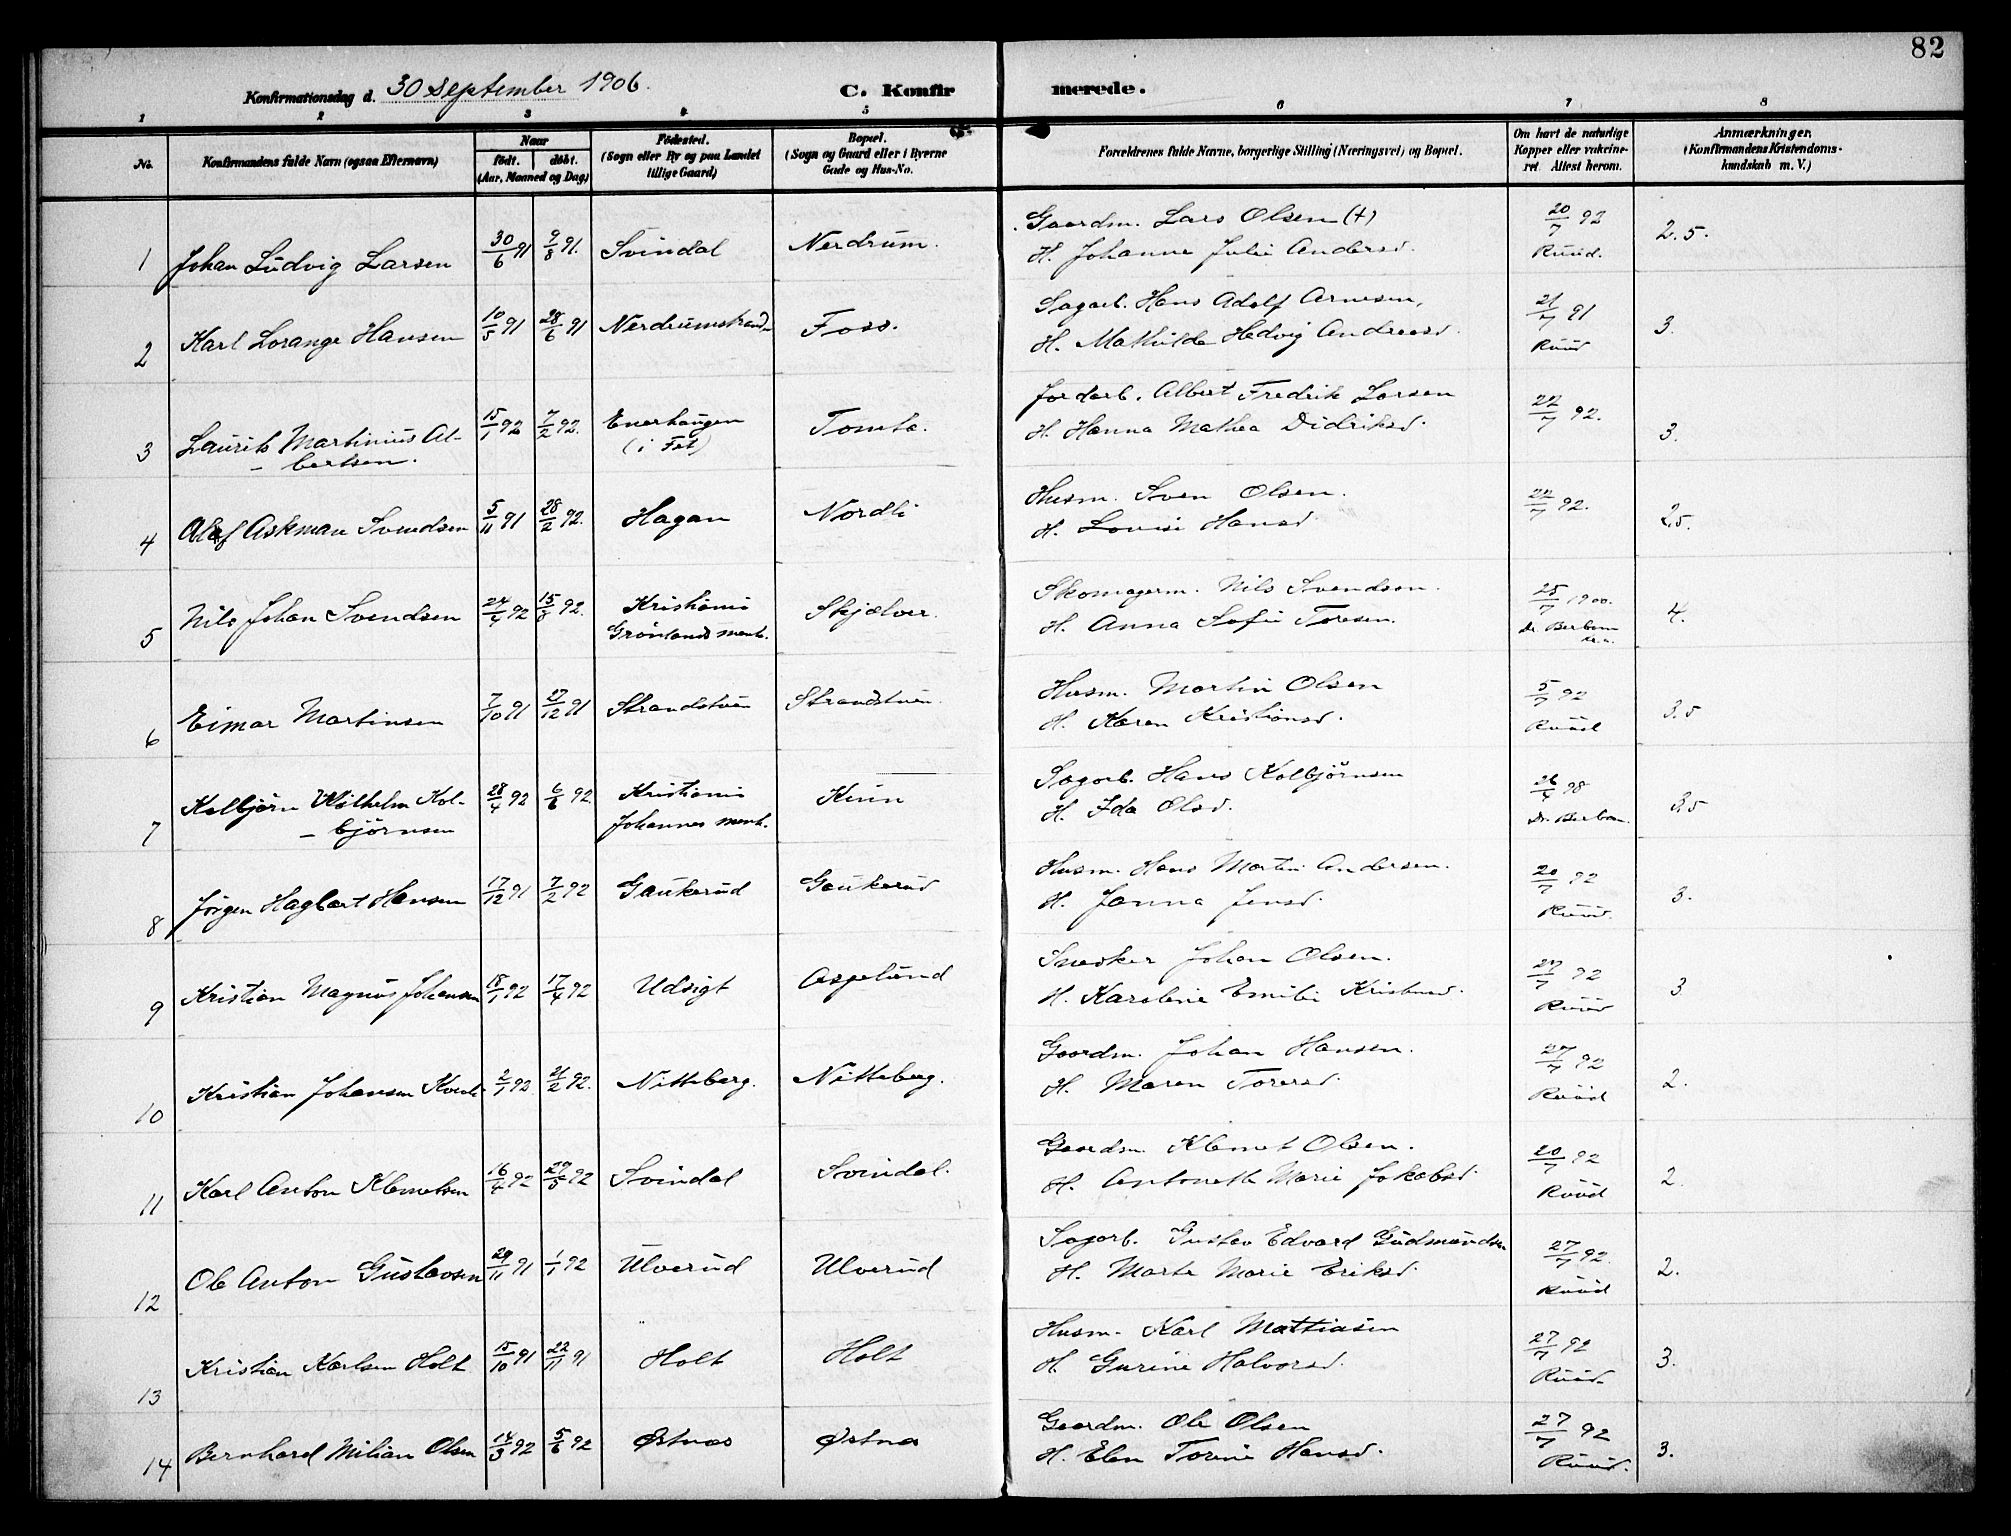 82
Konfirmationsdag d. 30 September 1906.
C. Konfirmerede.
1 2 3 4 5 6 7 8
No.
Konfirmandens fulde Navn (ogsaa Efternavn)
Naar
født. døbt.
(Aar, Maaned og Dag)
Fødested.
(Sogn eller By og paa Landet
tillige Gaard)
Bopæl.
(Sogn og Gaard eller i Byerne
Gade og Hus-No.
Forældrenes fulde Navne, borgerlige Stilling (Næringsvei) og Bopæl.
Om havt de naturlige
Kopper eller vakcine-
ret. Attest herom.
Anmærkninger,
(Konfirmandens Kristendoms-
kundskab m. V.)
1 Johan Ludvig Larsen 30/6 91 9/8 91. Svindal Nerdrum. Gaardm. Lars Olsen (†) 20/7 92 2.5.
H. Johanne Julie Andersd. Ruud.
2 Karl Lorange Hansen 10/5 91 28/6 91 Nerdrumstrand Foss. Sagarb. Hans Adolf Arnesen, 21/7 91 3.
H. Mathilde Hedvig Andreasd. Ruud
3 Laurits Martinius Al- 15/1 92 7/2 92. Enerhaugen Tomta. Jordarb. Albert Fredrik Larsen 22/7 92. 3.
bertsen. (i Fet) H. Hanna Mathea Didriksd.
4 Olaf Askman Svendsen 5/11 91 28/2 92. Hagan Nordli Husm. Sven Olsen. 22/7 92. 2.5.
H. Lovise Hansd.
5 Nils Johan Svendsen 24/4 92 15/8 92. Kristiania Skjælver. Skomagerm. Nils Svendsen. 25/7 1900. 4.
Grønlands menh. H. Anna Sofie Toresen. Dr. Berbom
Kr.a.
6 Eimar Martinsen 7/10 91 27/12 91 Strandstuen Strandstuen. Husm. Martin Olsen 5/7 92 3.5
H. Karen Kristiansd. Ruud
7 Kolbjørn Wilhelm Kol- 28/4 92 6/6 92. Kristiania Kinn Sagarb. Hans Kolbjørnsen 26/4 98 3.5
bjørnsen Johannes menh. H. Ida Olsd. Dr. Berbom.
8 Jørgen Hagbart Hansen 17/12 91 7/2 92 Gaukerud Gaukerud Husm. Hans Martin Andersen. 20/7 92 3.
H. Janna Jensd. Ruud.
9 Kristian Magnus Johansen 18/1 92 17/4 92 Udsigt Aspelund Snedker Johan Olsen. 27/7 92 3
H. Karoline Emilie Kristensd. Ruud
10 Kristian Johansen 2/1 92 21/2 92. Nitteberg. Nitteberg. Gaardm. Johan Hansen. 27/7 92 2.
H. Maren Toresd. Ruud
11 Karl Anton Klemetsen 16/4 92 29/5 92 Svindal Svindal. Gaardm. Klemet Olsen. 20/7 92 2.
H. Antonette Marie Jakobsd. Ruud
12 Ole Anton Gustavsen 29/11 91 1/1 92 Ulverud Ulverud Sagarb. Gustav Edvard Gudmundsen 27/7 92. 2.
H. Marte Marie Eriksd. Ruud
13 Kristian Karlsen Holt 15/10 91 22/11 91 Holt Holt Husm. Karl Mathiasen 27/7 92 3.
H. Gurine Halvorsd. Ruud.
14 Bernhard Milian Olsen 14/3 92 5/6 92 Østnes Østnes Gaardm. Ole Olsen 27/7 92 3.
H. Elen Torine Hansd. Ruud.